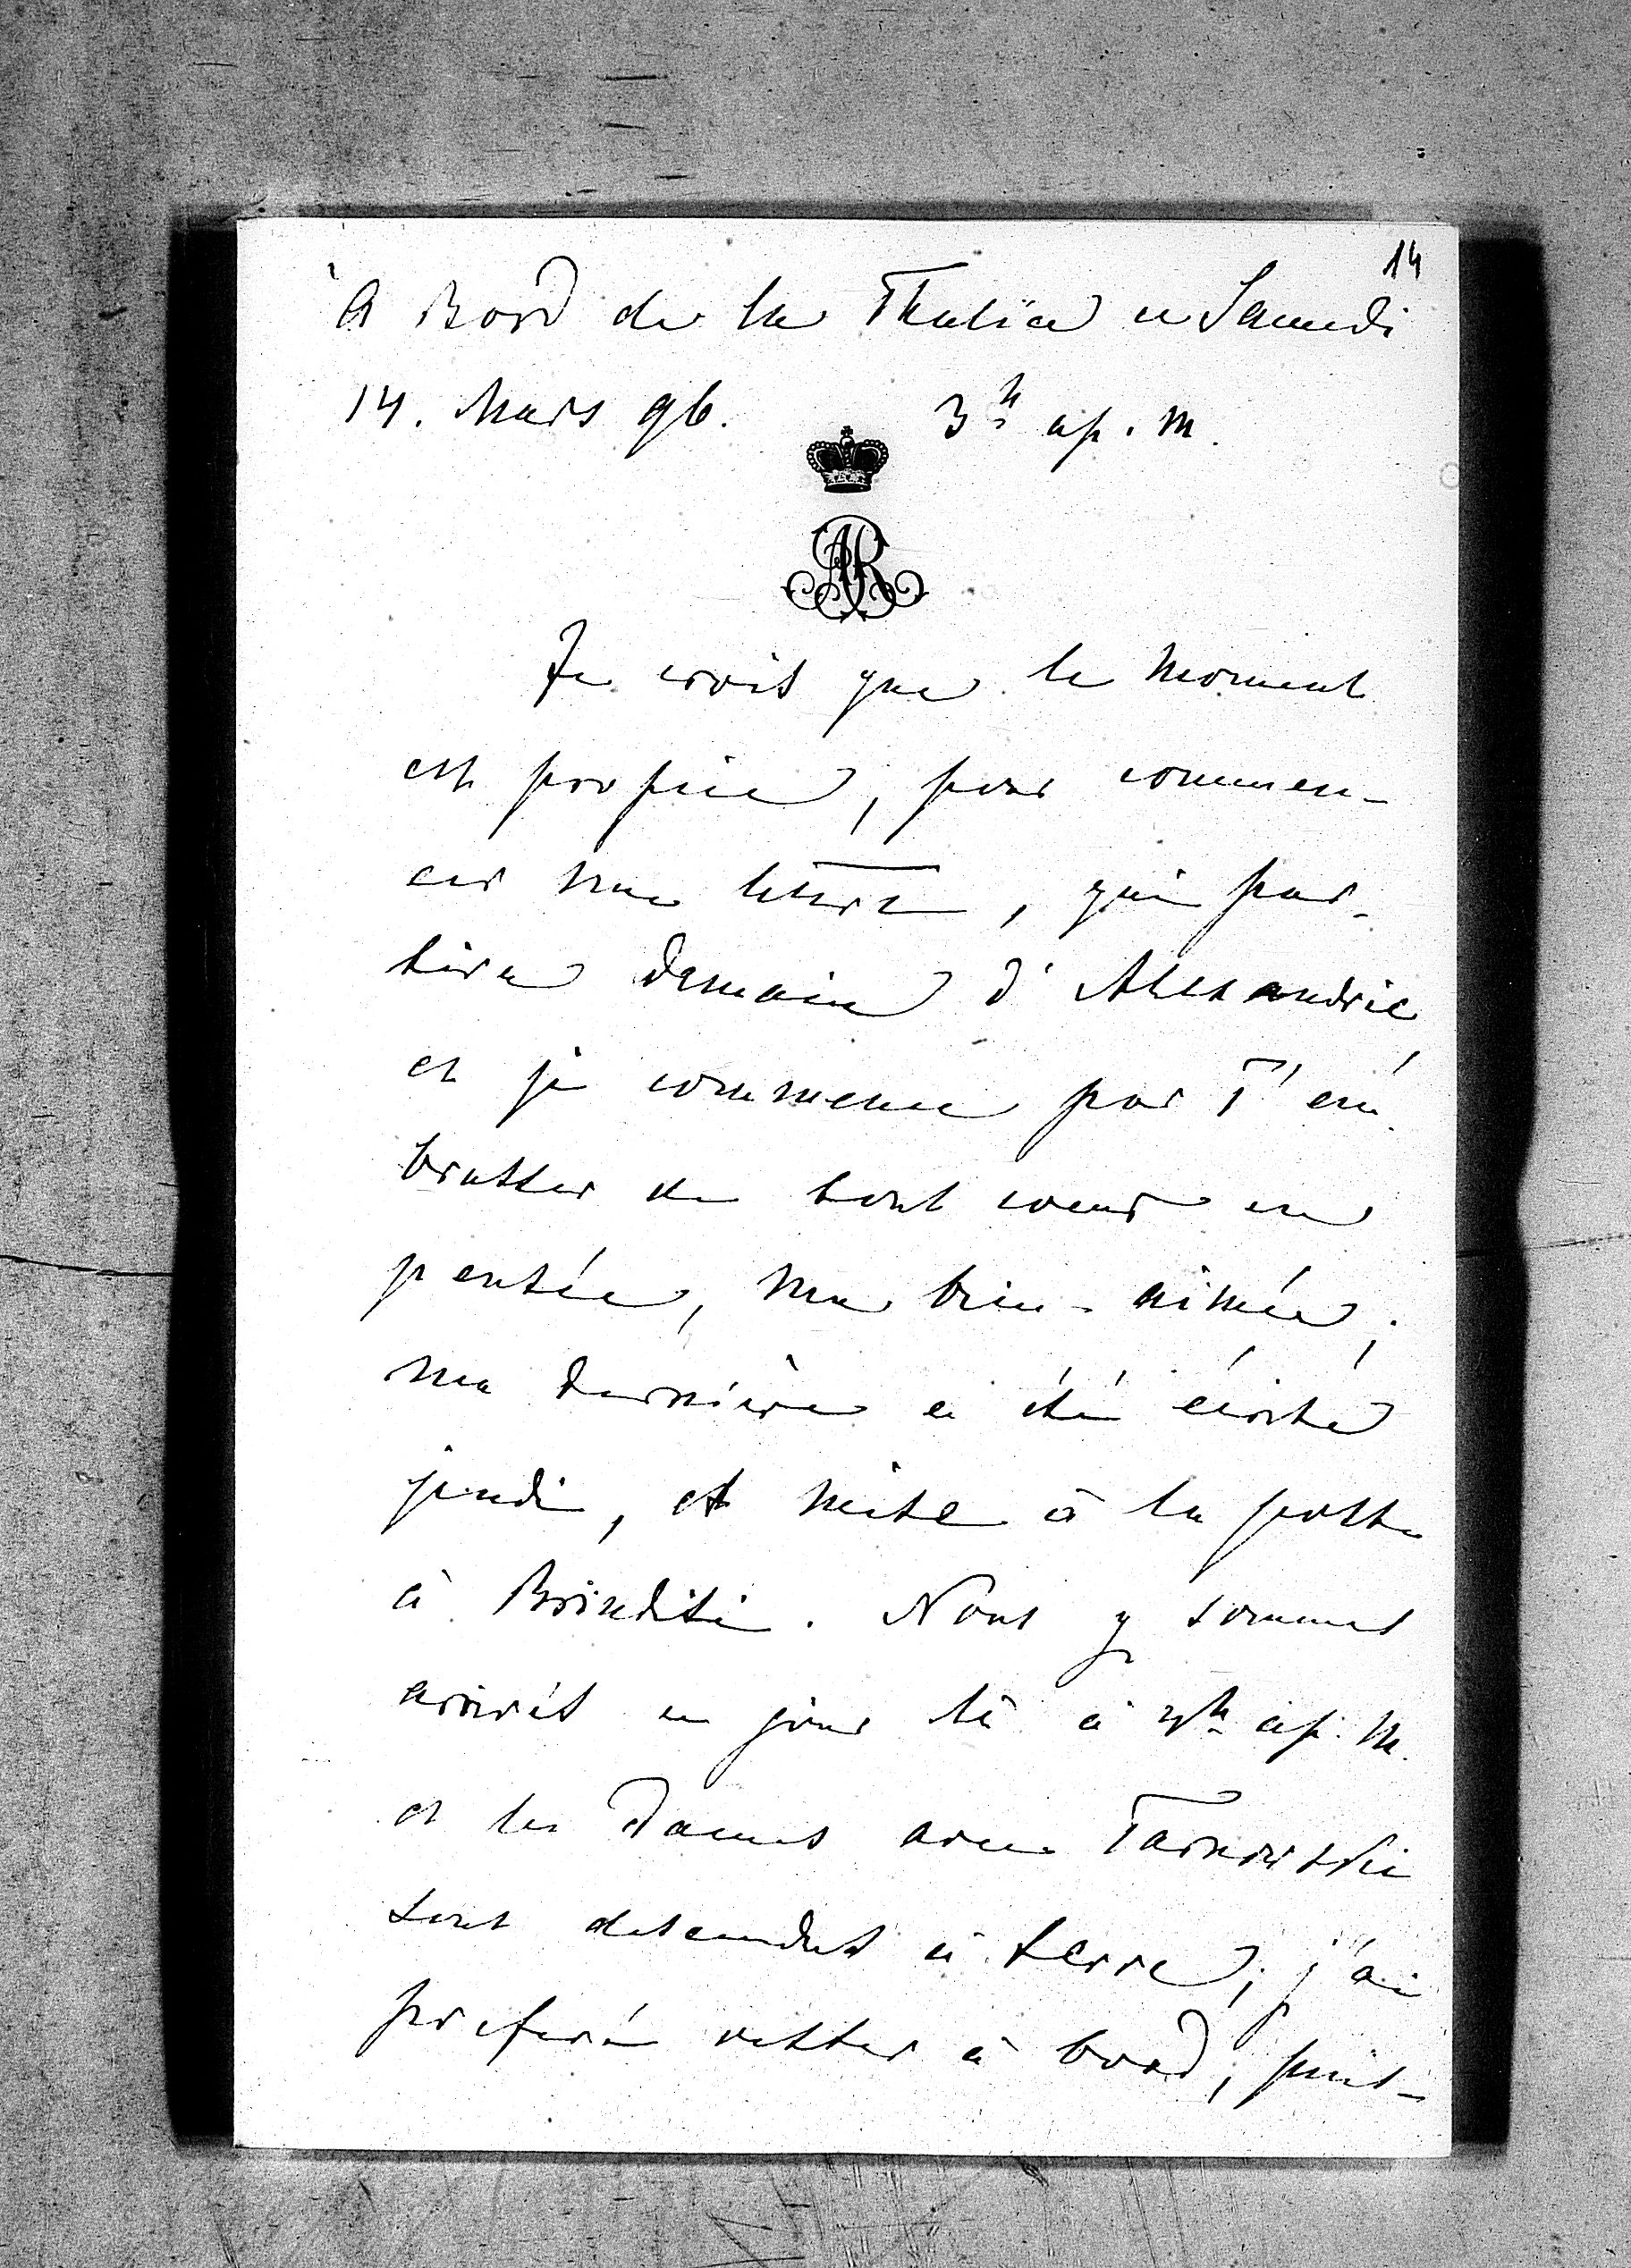 14
À Bord de la Thalia ce Samedi
14. Mars 96. 3h ap. m.
AR
Je crois que le moment
est propice, pour commen-
cer une lettre, qui par-
tira demain d'Alexandrie
et je commence par T'em
brasser de tout coeur en
pensée, ma bien-aimée;
ma dernière a été écrite
jeudi, et mise à la poste
à Brindisi. Nous y sommes
arrivés ce jour là à h ap. m.
et les Dames avec Tarnowski
sont descendus à terre; j'ai
preferé rester à bord, puis-